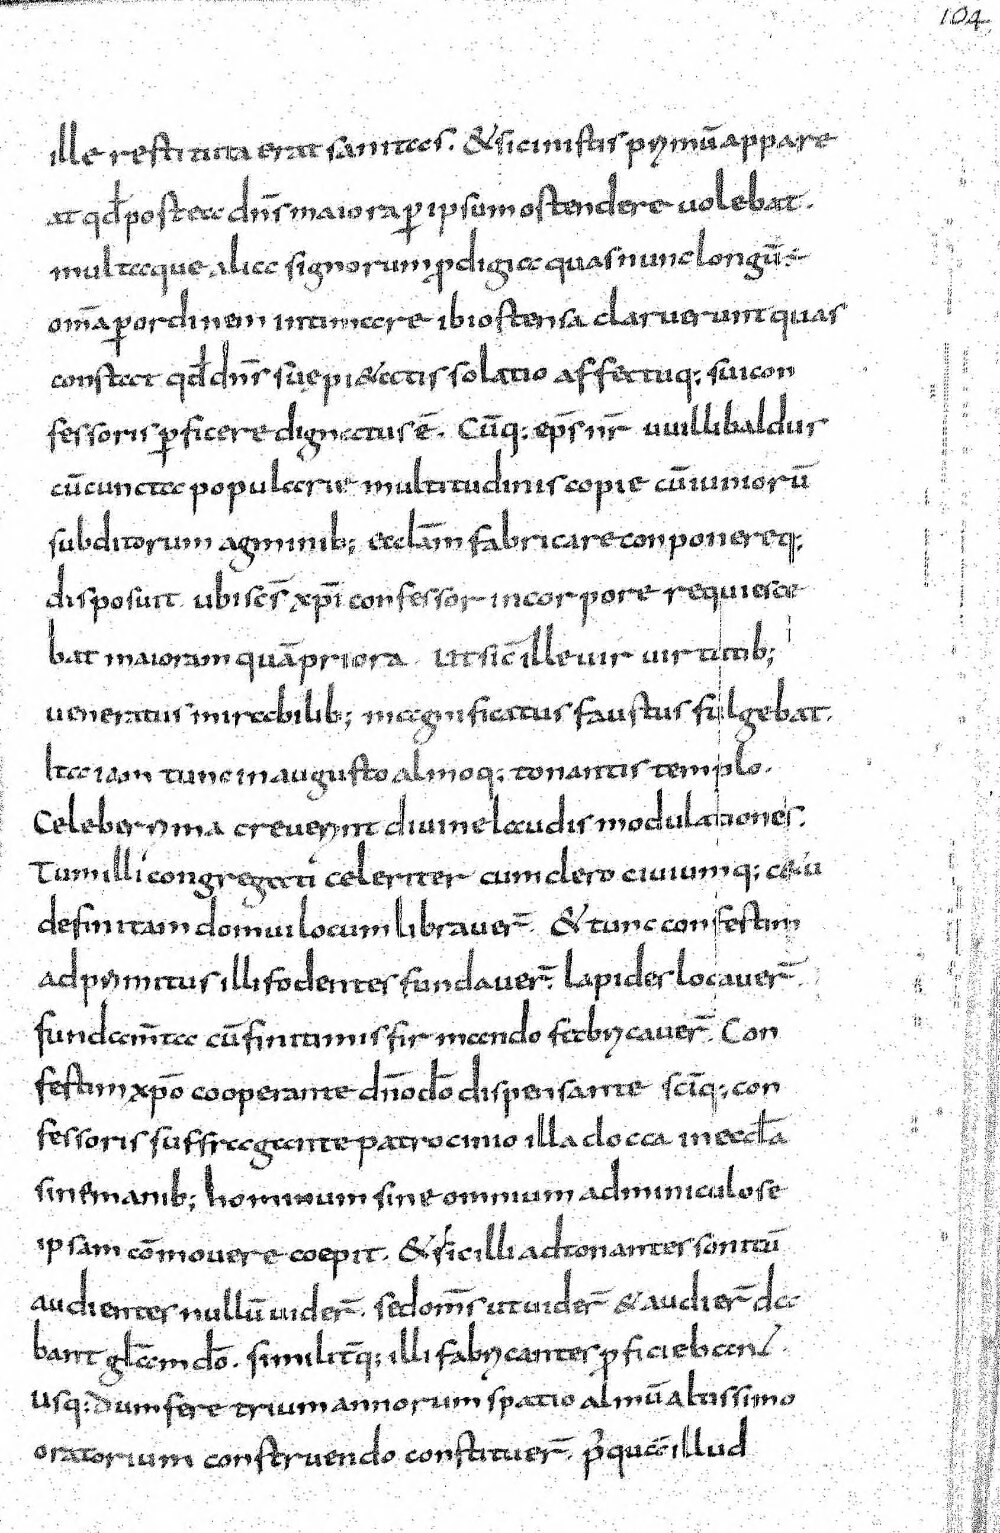 104
ille restituta erat sanitas. & sicut istis primū appare
at qđ postea dn̄s maiora ꝑ ipsum ostendere volebat.
multaque alia signorum ꝓdigia quas nunc longū ÷
om̄a ꝑ ordinem intimare ibi ostensa claruerunt quas
constat qđ dn̄s suę pi&atis solatio affectuq; sui con
fessoris ꝑficere dignatus ē. Cūq; ep̄s nr̄ uuillibaldus
cū cuncta popularie multitudinis copie cū iuniorū
subditorum agminib; eccłam fabricare conponereq;
disposuit ubi sc̄s xp̄i confessor in corpore requiesce
bat maioram quā priora Ut sic̄ ille vir virtutib;
veneratus mirabilib; magnificatus faustus fulgebat.
Ita iam tunc in augusto almoq; tonantis templo.
Celeberrima creverunt divine laudis modulationes.
Tum illi congregati celeriter cum clero civiumq; c&u
definitam domui locum libraver̄. & tunc confestim
ad primitus illi fodentes fundaver̄. lapides locaver̄.
fundam̄ta cū finitimis firmando fabricaver̄. Con
festim xp̄o cooperante dn̄o dō dispensante sc̄iq; con
fessoris suffragante patrocinio illa clocca in eccła
sine manib; hominum sine omnium adminiculo se
ipsam cōmovere coepit. & sic illi adtonantes sonitū
audientes nullū vider̄. sed om̄s ut vider̄ & audier̄ da
bant głam dō. similit̄q; illi fabricantes ꝓficiebant.
Usq; dum fere trium annorum spatio almū altissimo
oratorium construendo constituer̄. p̄ quā illud